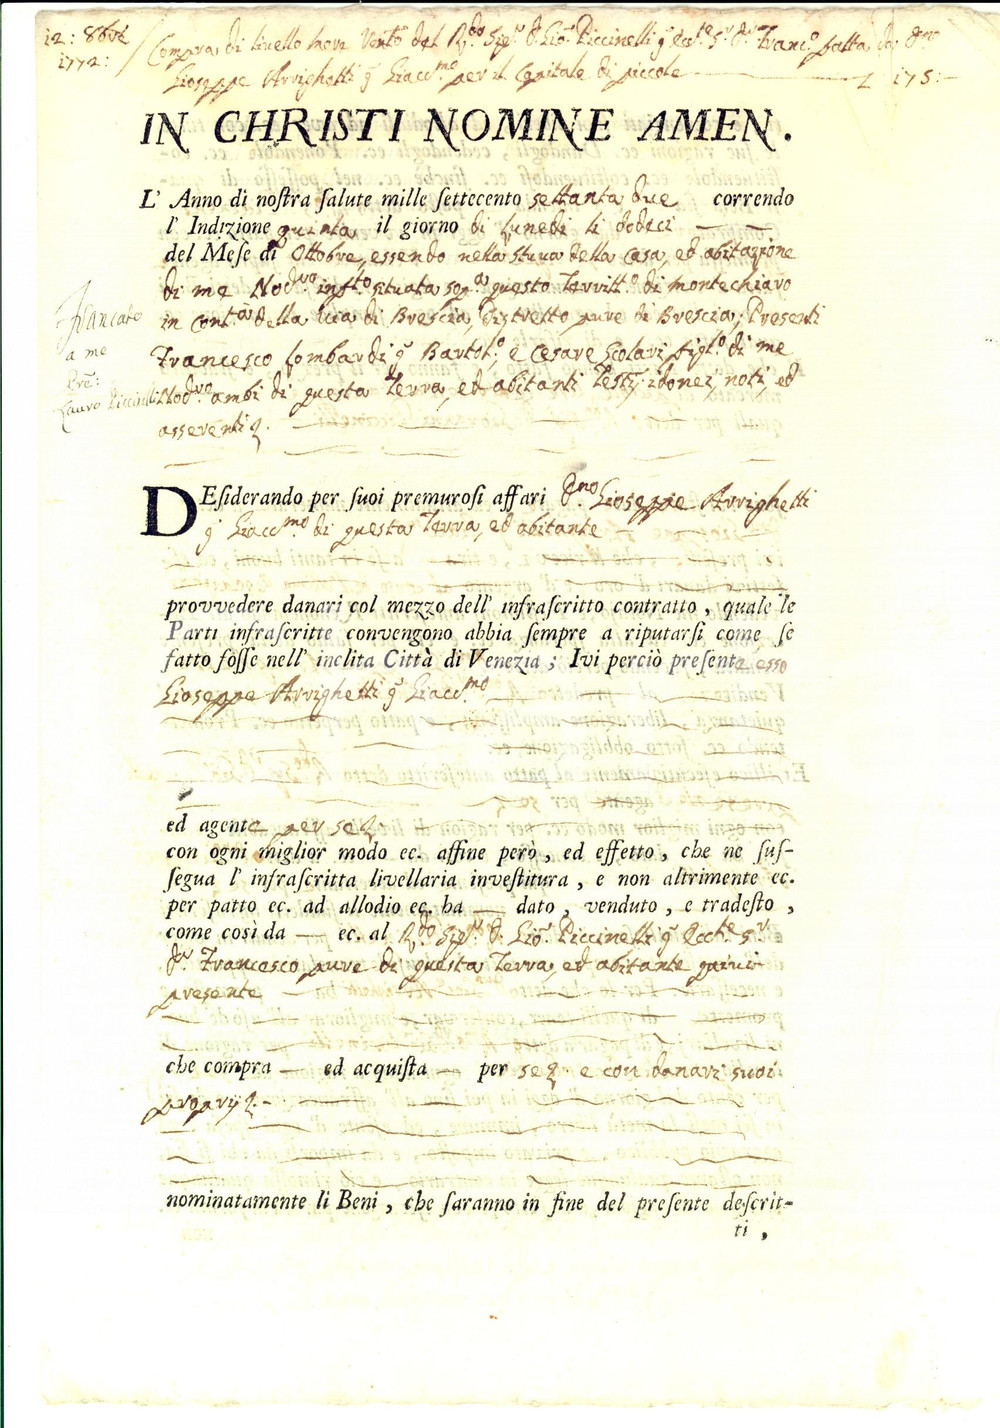 12: 8bre
1772:
Compra di livello more Veneto del Rdo Sigr D. Gio: Piccinelli q Eccte Sr Dr Franco fatta da Dno
Gioseppe Arrighetti q Giaccmo per il Capitale di piccole L 175:—
IN CHRISTI NOMINE AMEN.
L' Anno di noſtra ſalute mille ſettecento settanta due correndo
l' Indizione quinta il giorno di Lunedi li dodeci
del Meſe di Ottobre, essendo nella stuua della Casa, ed abitazione
di me Nodro infto situata sopa questo Territto di montechiaro
in Conta della Città di Brescia, Distretto pure di Brescia; Presenti
Francesco Lombardi q Bartolo; e Cesare Scolari figlo di me
Nodro ambi di questa Terra, ed abitanti Testj idonei, noti, ed
asserenti
Francate
a me
Pre:
Lauro Piccinelli
DEſiderando per ſuoi premuroſi affari Dno Gioseppe Arrighetti
q Giaccmo di questa Terra, ed abitante
provvedere danari col mezzo dell' infraſcritto contratto, quale le
Parti infraſcritte convengono abbia ſempre a riputarſi come ſe
fatto foſſe nell' inclita Città di Venezia; Ivi perciò preſente esso
Gioseppe Arrighetti q Giaccmo
ed agente per se
con ogni miglior modo ec. affine però, ed effetto, che ne ſuſ-
ſegua l' infraſcritta livellaria inveſtitura, e non altrimente ec.
per patto ec. ad allodio ec. ha — dato, venduto, e tradeſto,
come così da — ec. al Rdo Sigr D. Gio: Piccinelli q Ecctte Sr
Dr Francesco pure di questa Terra, ed abitante quiui
presente
che compra — ed acquiſta — per se e con danari suoi
proprij
nominatamente li Beni, che ſaranno in fine del preſente deſcrit-
ti,